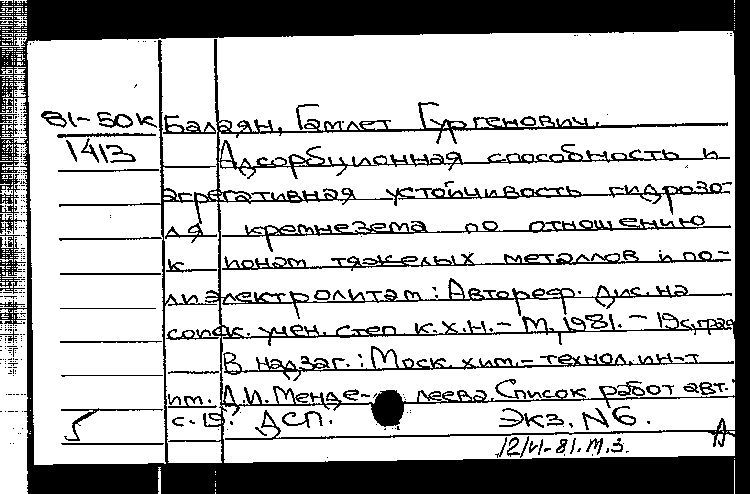 81-50к Балаян, Гамлет Гургенович.
1413 Адсорбционная способность и
агрегативная устойчивость гидрозо-
ля кремнезема по отношению
к ионам тяжелых металлов и по-
лиэлектролитам: Автореф. дис. на
соиск. учен. степ к.х.н. - М, 1981. - 19с, граф
В надзаг.: Моск. хим.-технол. ин-т
им. Д.И. Менде- леева. Список работ авт.:
с.19. ДСП. Экз. N6.
12/VI-81. М.З.